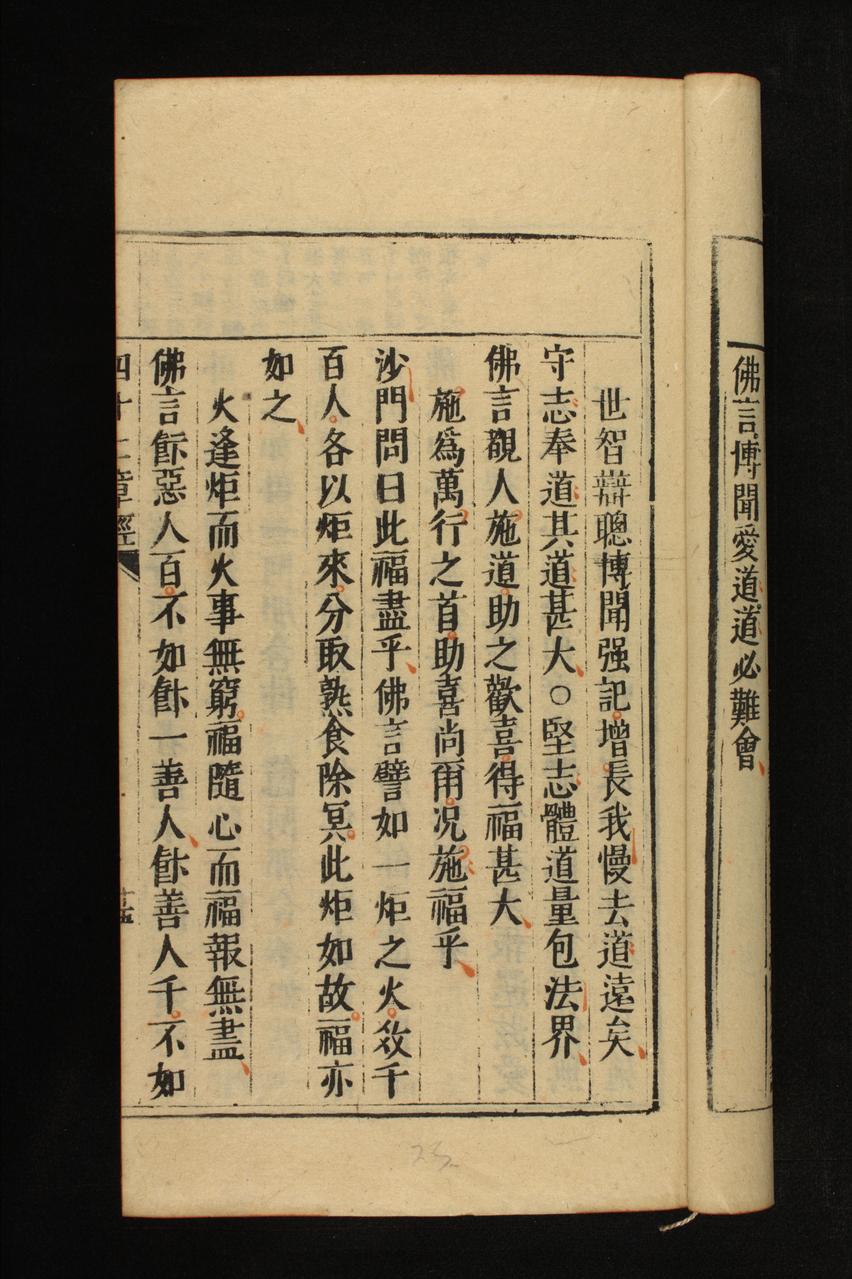 佛言博聞愛道道必難會
世智辯聰博聞强記增長我慢去道遠矣
守志奉道其道甚大〇堅志體道量包法界
佛言覩人施道助之歡喜得福甚大
施爲萬行之首助喜尚爾况施福乎
沙門問曰此福盡乎佛言譬如一炬之火數千
百人各以炬來分取熟食除冥此炬如故福亦
如之
火逢炬而火事無窮福隨心而福報無盡
佛言飯惡人百不如飯一善人飯善人千不如
四十二章經